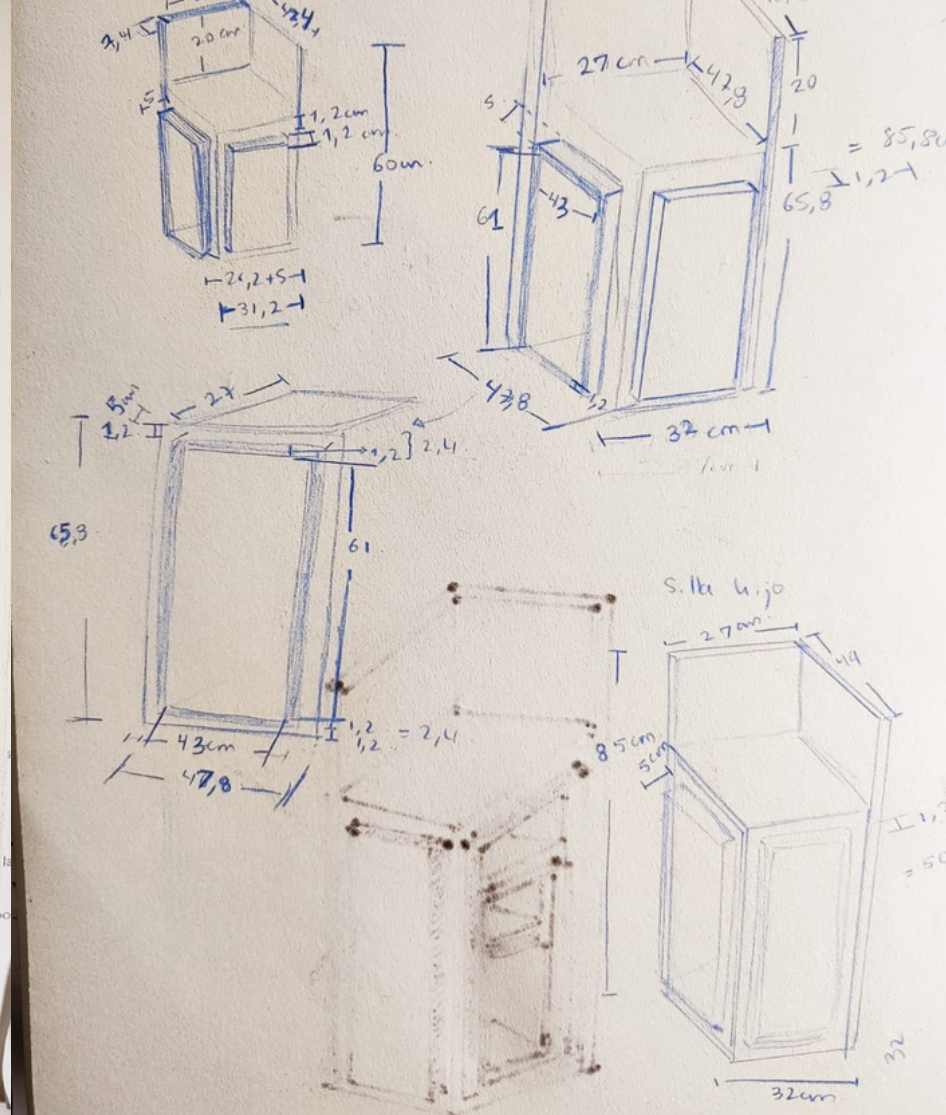 20 cm
5
1,2cm
1,2 cm
60cm.
26,2+5
31,2
27 cm
47,8
20
= 85,80
5
43
1,2
61
65,8
47,8
1,2
32 cm
5cm
27
1,2
1,2 } 2,4
65,8
61
1,2
1,2 = 2,4
43cm
47,8
Silla hijo
27cm.
44
85cm
5cm
32
32cm